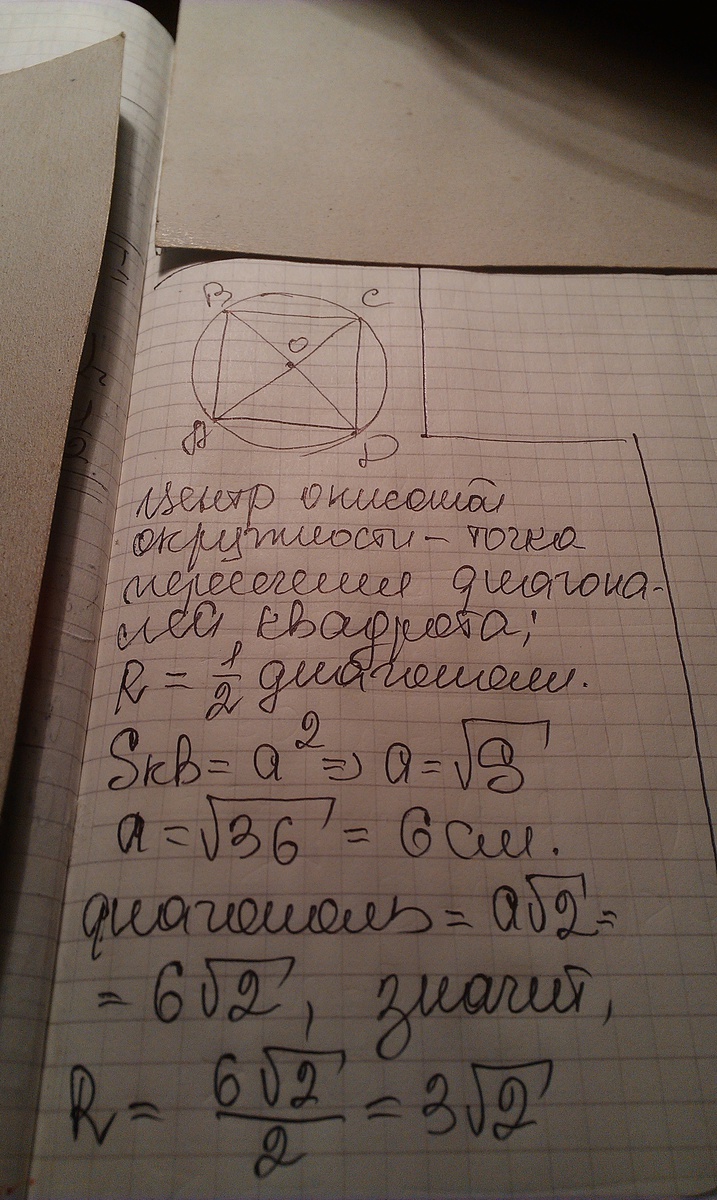 B C
O
A D
центр описаной
окружности - точка
пересечения диагона-
лей квадрата;
R = 1/2 диагонали.
Sкв = a² => a = √S
a = √36 = 6 см.
диагональ = a√2 =
= 6√2, значит,
R = 6√2/2 = 3√2